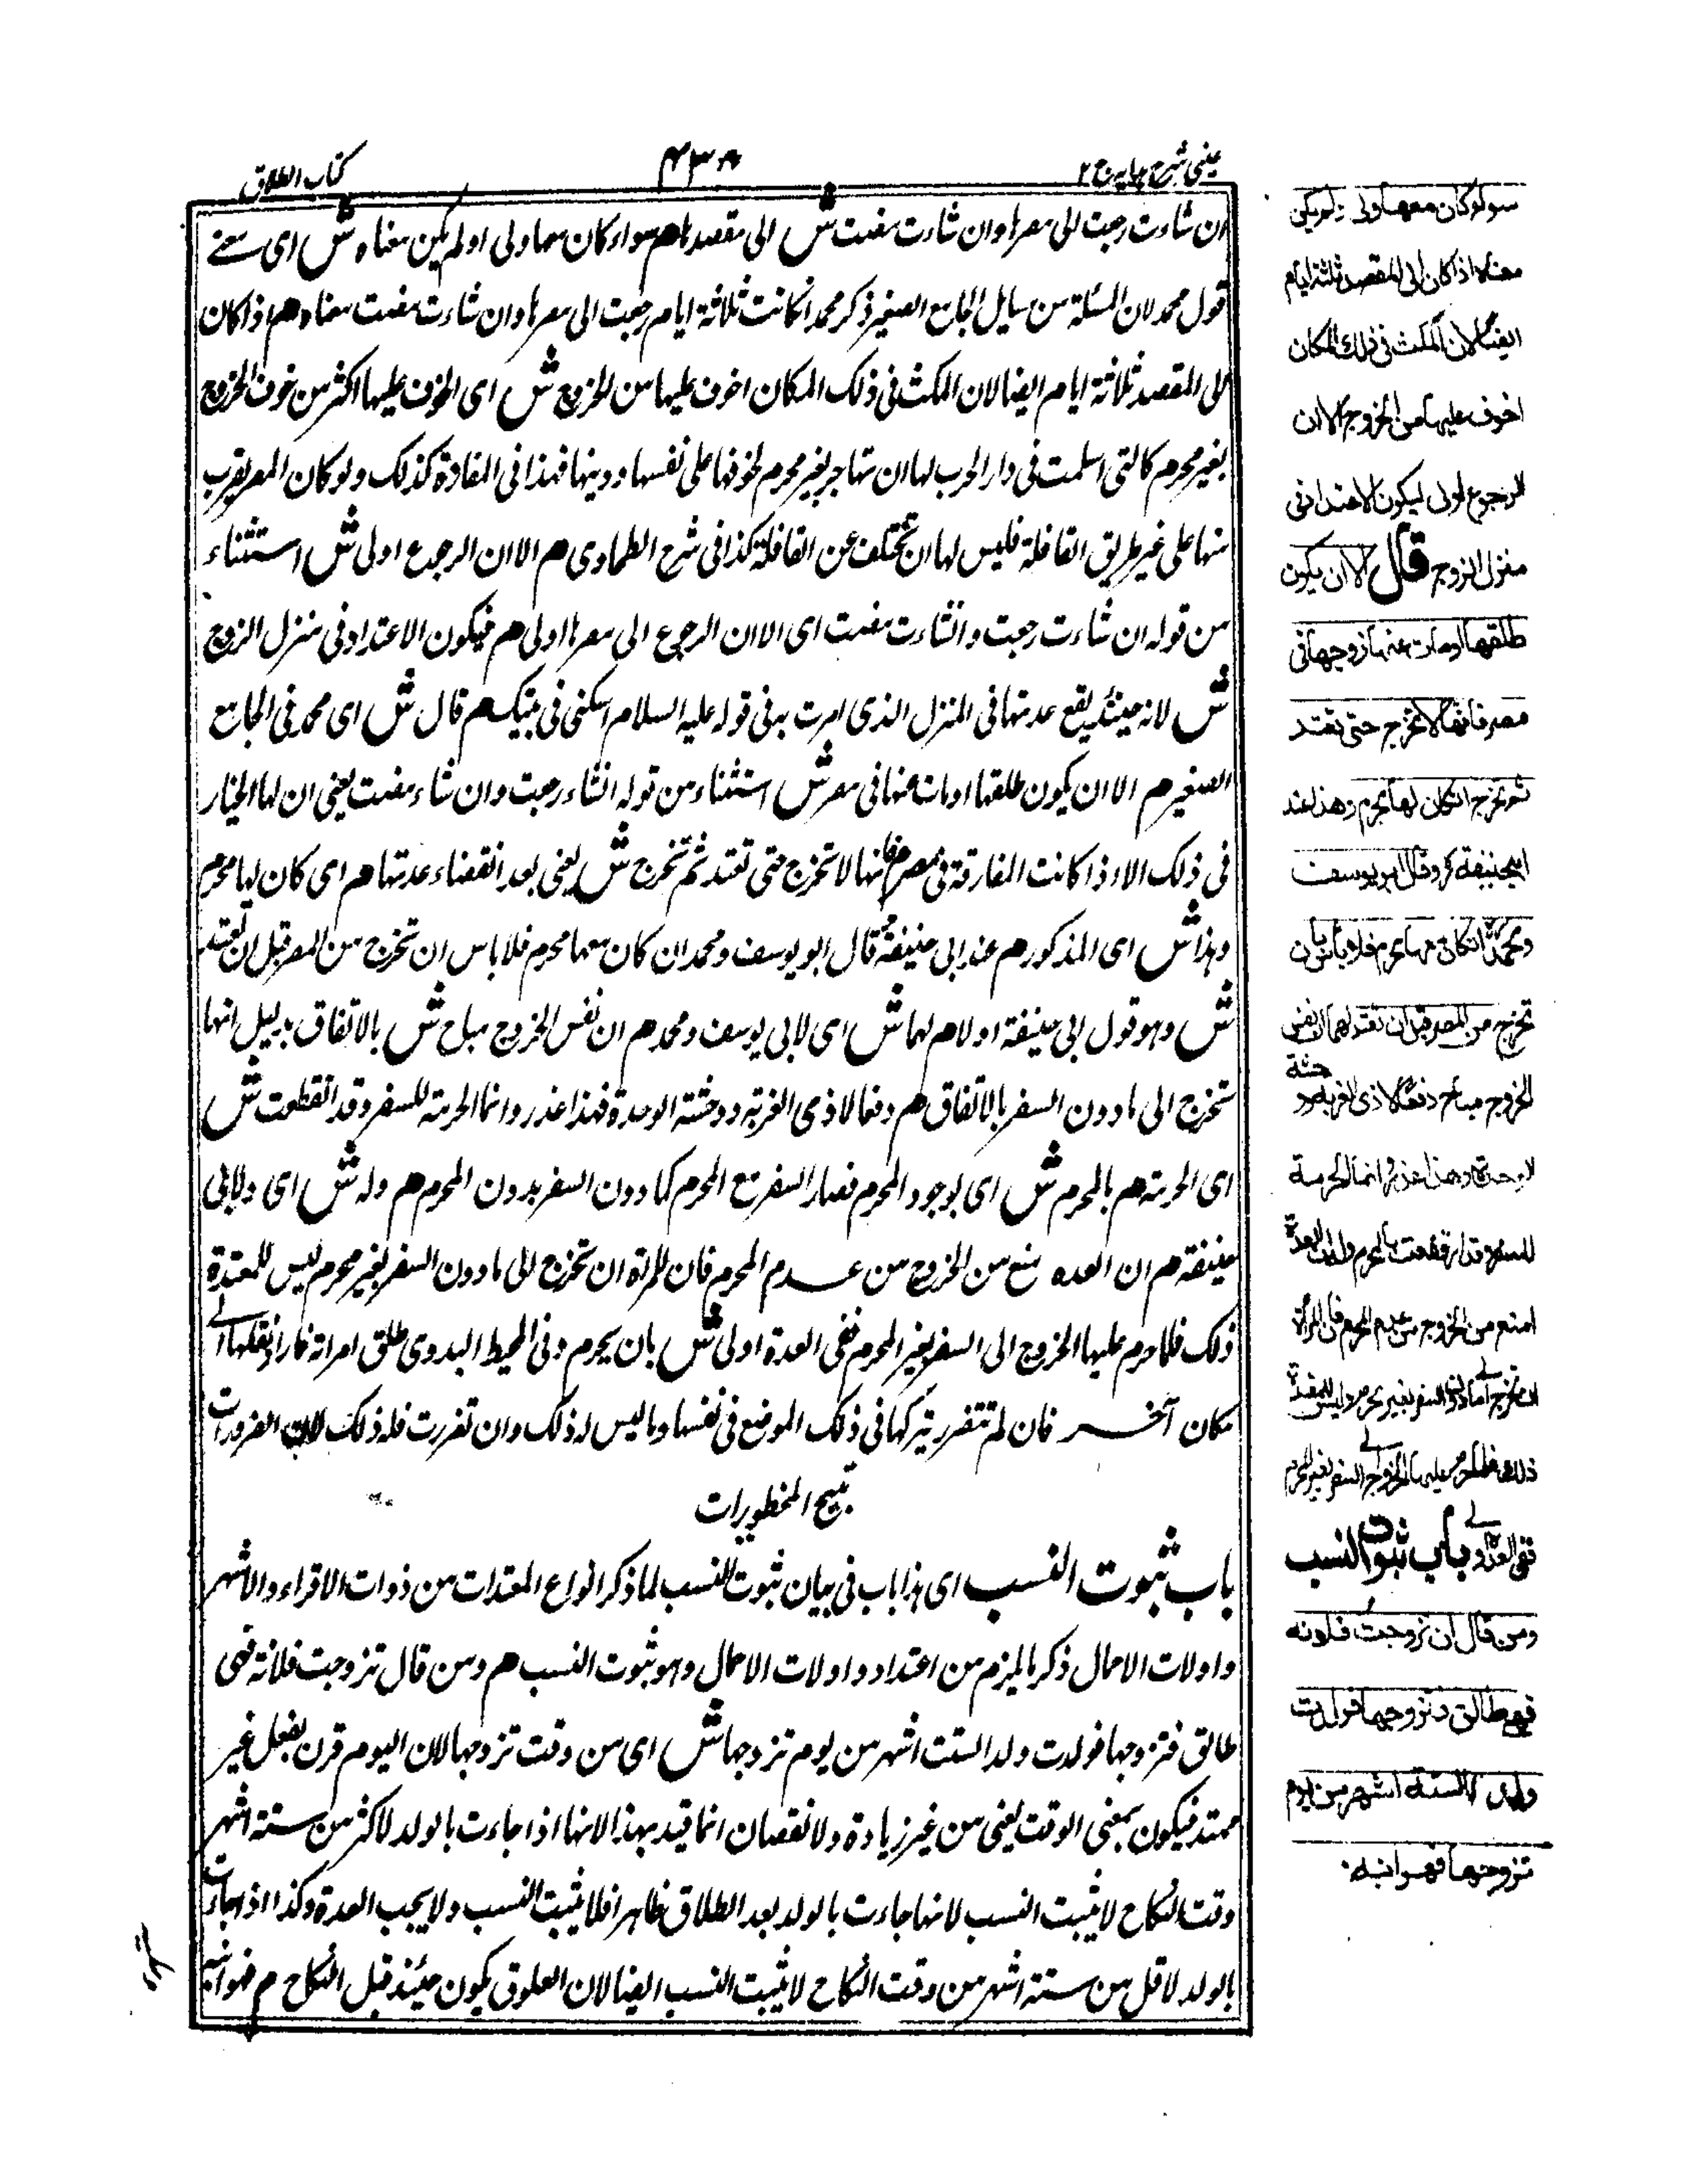 عینی شرح ہدایہ ج ۲
کتاب الطلاق
ان شاءت رجعت الی مصرہا وان شاءت مضت ش الی مقصدہا ھم سواء کان معہا ولی او لم یکن معناہ ش ای معنے
قول محمد لان المسئلۃ من مسایل الجامع الصغیر ذکر محمد انکانت ثلاثۃ ایام رجعت الی مصرہا وان شاءت مضت معناہ ھم اذا کان
الی المقصد ثلاثۃ ایام ایضا لان المکث فی ذلک المکان اخوف علیہا من الخروج ش ای الخوف علیہا اکثر من خوف الخروج
بغیر محرم کالتی اسلمت فی دار الحرب لہا ان تہاجر بغیر محرم لخوفہا علی نفسہا ودینہا فہذا فی المفازۃ کذلک ولو کان المصر بقرب
منہا علی غیر طریق القافلۃ فلیس لہا ان تختلف عن القافلۃ کذا فی شرح الطحاوی م الا ان الرجوع اولی ش استثناء
من قولہ ان شاءت رجعت وانشاءت مضت ای الا ان الرجوع الی مصرہا اولی ھم فیکون الاعتداد فی منزل الزوج
ش لانہ حینئذ یقع عدتہا فی المنزل الذی امرت بہ فی قولہ علیہ السلام اسکنی فی بیتک ھم قال ش ای محمد فی الجامع
الصغیر م الا ان یکون طلقہا او مات عنہا فی مصر ش استثناء من قولہ انشاء رجعت وان شاء مضت یعنی ان لہا الخیار
فی ذلک الا اذا کانت المفارقۃ فی مصر م فانہا لا تخرج حتی تعتد ثم تخرج ش یعنی بعد انقضاء عدتہا ھم ای کان لہا محرم
وہذا ش ای المذکور ھم عند ابی حنیفۃ قال ابو یوسف ومحمد ان کان معہا محرم فلا باس ان تخرج من المصر قبل ان تعتد
ش وہو قول ابی حنیفۃ اولا م لہما ش ای لابی یوسف ومحمد ھم ان نفس الخروج مباح ش بالاتفاق بدلیل انہا
تخرج الی ما دون السفر بالاتفاق ھم دفعا لاذی الغربۃ ووحشۃ الوحدۃ فہذا عذر وانما الحرمۃ للسفر وقد انقطعت ش
ای الحرمۃ ھم بالمحرم ش ای بوجود المحرم فصار السفر مع المحرم کما دون السفر بدون المحرم ھم ولہ ش ای ولابی
حنیفۃ م ان العدہ منع من الخروج من عدم المحرم فان للمراۃ ان تخرج الی ما دون السفر بغیر محرم لیس للمعتدۃ
ذلک فلما حرم علیہا الخروج الی السفر بغیر المحرم ففی العدۃ اولی ش بان یحرم وفی المحیط البدوی طلق امراتہ فاراد نقلہا الے
مکان آخر فان لم تتضرر بترکہا فی ذلک الموضع فی نفسہا ومالیس لہ ذلک وان تضررت فلہ ذلک لان الضرورات
تبیح المحظورات
باب ثبوت النسب ای ہذا باب فی بیان ثبوت النسب لما ذکر انواع المعتدات من ذوات الاقراء والاشہر
واولات الاحمال ذکر ما یلزم من اعتداد واولات الاحمال وہو ثبوت النسب ھم ومن قال تزوجت فلانۃ فہی
طالق فتزوجہا فولدت ولدا لستت اشہر من یوم تزوجہا ش ای من وقت تزوجہا لان الیوم قرن بفعل غیر
ممتد فیکون بمعنی الوقت یعنی من غیر زیادۃ ولا نقصان انما قید بہذا لانہا اذا جاءت بالولد لاکثر من ستۃ اشہر
وقت النکاح لا یثبت النسب لانہا جاءت بالولد بعد الطلاق ظاہرا فلا یثبت النسب ولا یجب العدۃ وکذا اذا جاءت
بالولد لاقل من ستۃ اشہر من وقت النکاح لا یثبت النسب ایضا لان العلوق یکون حینئذ قبل النکاح م فہو ابنہ
سواء کان معہا ولی او لم یکن
معناہ اذا کان الی المقصد ثلثۃ ایام
ایضا لان المکث فی ذلک المکان
اخوف علیہا من الخروج الا ان
الرجوع اولی لیکون الاعتداد فی
منزل الزوج قال الا ان یکون
طلقہا او مات عنہا زوجہا فی
مصر فانہا لا تخرج حتی تعتد
ثم تخرج انکان لہا محرم وھذا عند
ابی حنیفۃ وقال ابو یوسف
ومحمد انکان معہا محرم فلا باس بان
تخرج من المصر قبل ان تعتد لہما ان نفس
الخروج مباح دفعا لاذی الغربۃ و وحشۃ
الوحدۃ وھذا عذر وانما الحرمۃ
للسفر وقد ارتفعت بالمحرم ولہ ان العدۃ
امنع من الخروج من عدم المحرم فان للمرأۃ
ان تخرج الی ما دون السفر بغیر محرم ولیس للمعتدۃ
ذلک فلما حرم علیہا الخروج الی السفر بغیر المحرم
ففی العدۃ اولی باب ثبوت النسب
ومن قال ان تزوجت فلانۃ
فہی طالق فتزوجہا فولدت
ولدا لستۃ اشہر من یوم
تزوجہا فہو ابنہ